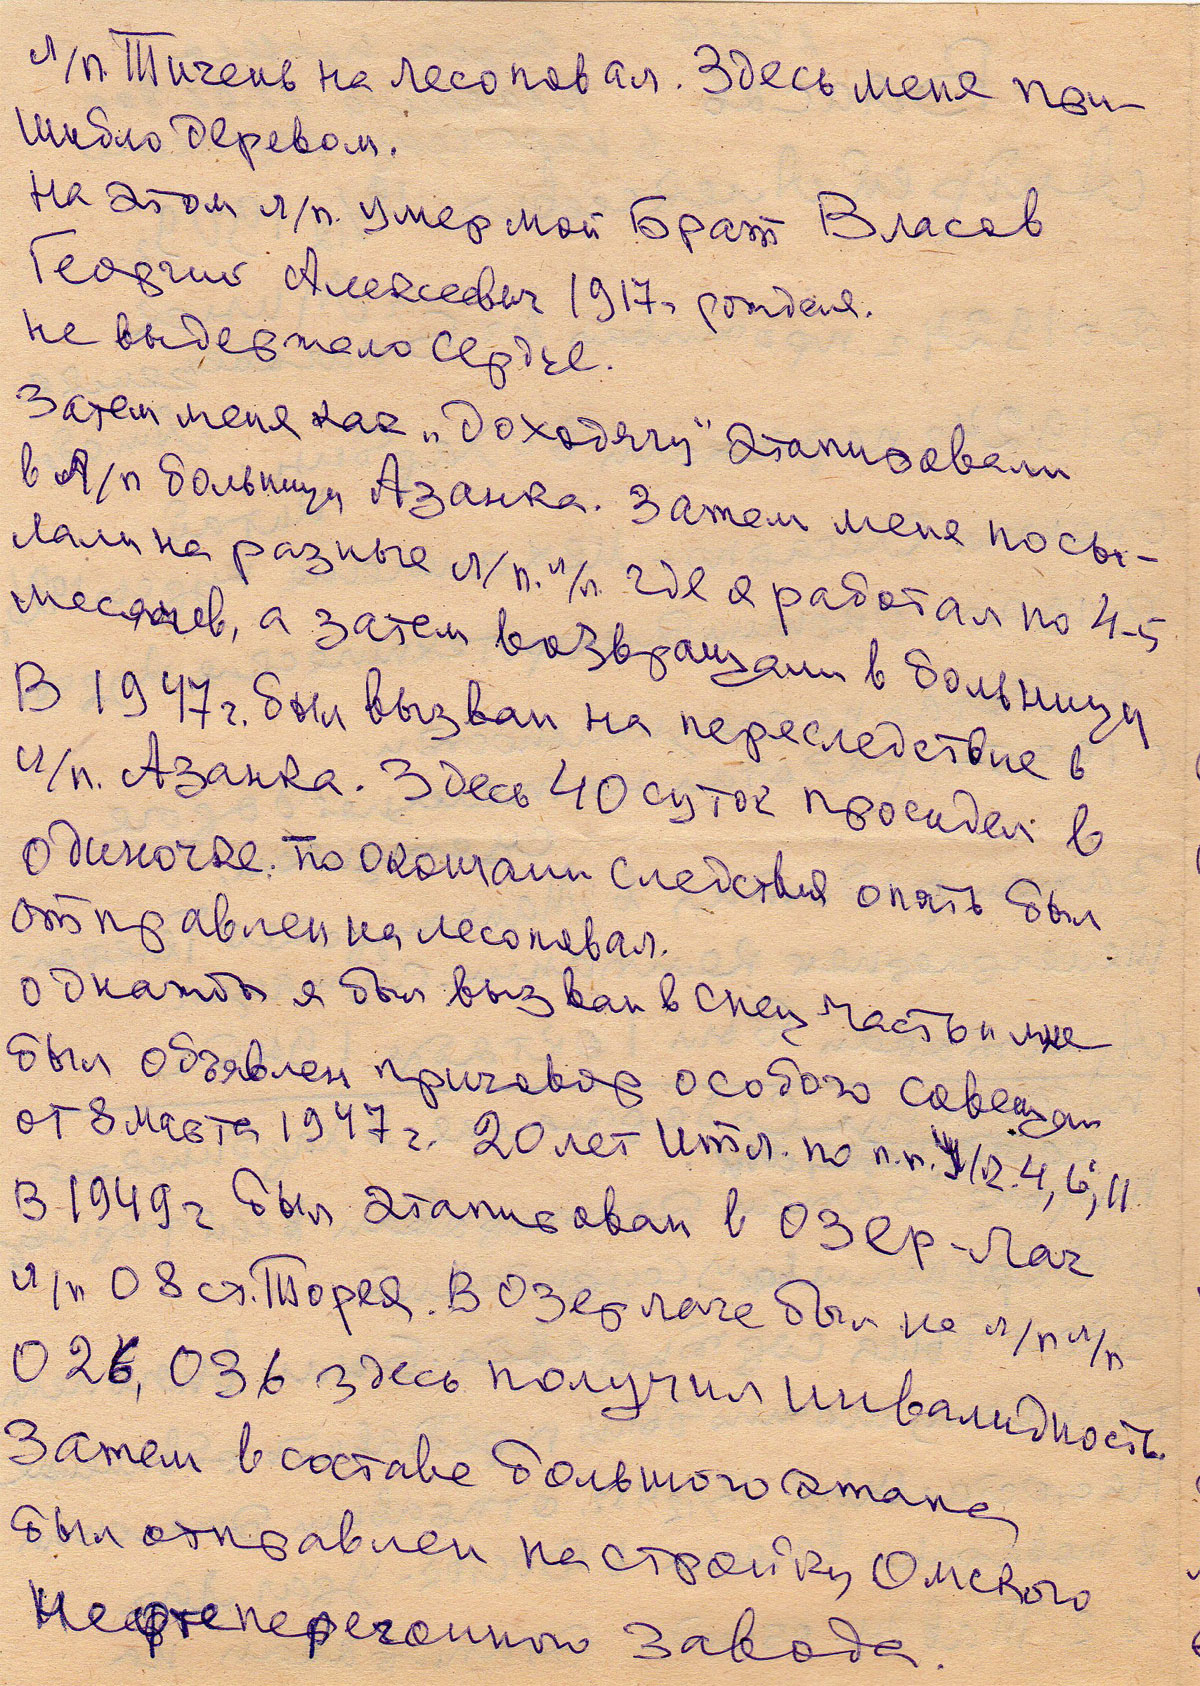 л/п. Тичень на лесоповал. Здесь меня при-
шибло деревом.
на этом л/п. умер мой Брат Власов
Георгий Алексеевич 1917г рождения.
не выдержало сердце.
Затем меня как „доходягу" этапировали
в л/п больницу Азанка. Затем меня посы-
лали на разные л/п. л/п. где я работал по 4-5
месяцев, а затем возвращали в больницу
В 1947г. был вызван на переследствие в
л/п. Азанка. Здесь 40 суток просидел в
одиночке. по окончании следствия опять был
отправлен на лесоповал.
однажды я был вызван в спец часть и мне
был объявлен приговор особого совещан
от 8 марта 1947г. 20 лет итл. по п.п. 4, 6, 11
В 1949г был этапирован в Озер-лаг
л/п 08 ст. Торея. В Озерлаге был на л/п л/п
026, 036 здесь получил инвалидность.
Затем в составе большого этапа
был отправлен на стройку Омского
Нефтеперегонного завода.